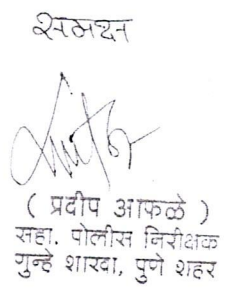 समक्ष
( प्रदीप आफळे )
सहा. पोलीस निरीक्षक
गुन्हे शाखा, पुणे शहर